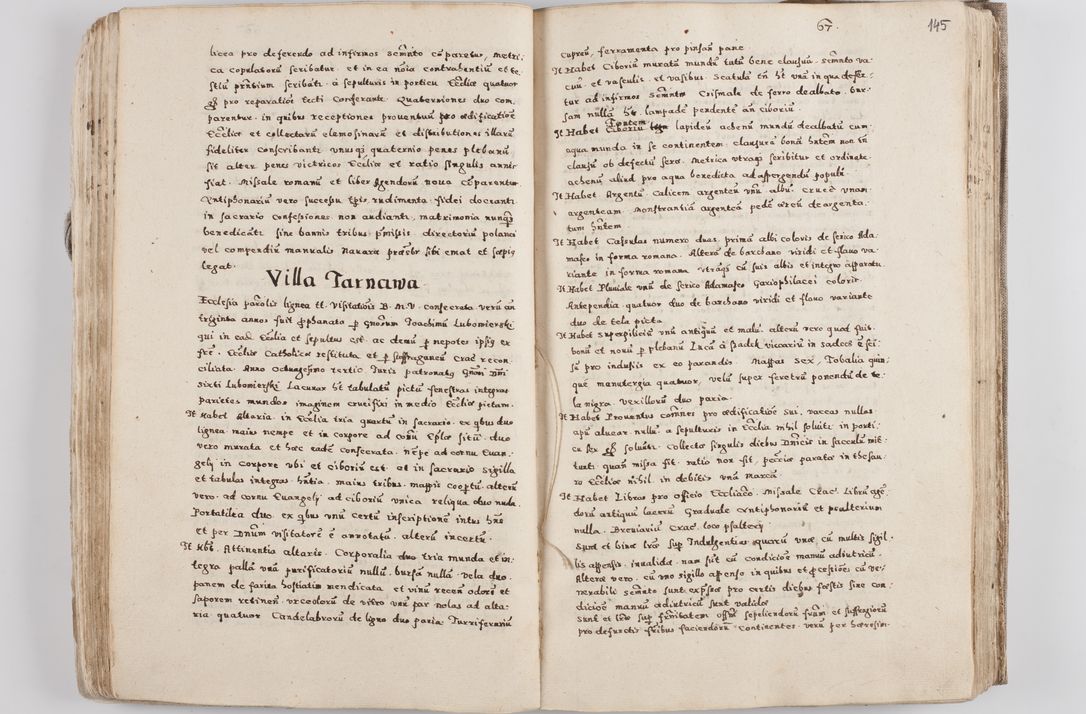 licea pro deferendo ad infirmos semnto cōparetur, metri-
ca copulatorū scribatur et in ea noīa contrahentiū et te-
stiū prntium scribāt. a sepulturis in porticu Eccliæ quatuor
pro reparatioē tecti conferant. Quaterniones duo com-
parentur in quibus receptiones proventuū pro ædificatioē
Eccliæ et collectarū elemosinarū et distributiones illarū
fideliter conscribant. unusq quaternio penes plebanū
sit alter penes victricos Eccliæ et ratio singulis annis
fiat. Missale romanū et liber Agendorū nova cōparentur
Antiphonariū vero successu tpis, rudimenta fidei doceant
in sacrario confessiones non audiant, matrimonia nunq
benedicāt sine bannis tribus pmissis directoriū
vel compendiū manualis Navara præsbr sibi emat et sæpiq
legat.
Villa Tarnawa
Ecclesia parolis lignea tt. Visitatiois B. M. V. consecrata verū an
triginta annos fuit pphanata p Gnosum Joachimū Lubomierski
qui in ead. Ecclia et sepultus est ac demū p nepotes ipsiq ex
frē. Eccliæ Catholicæ restituta et p suffraganeū Crac recon
ciliata Anno Octuagesimo tertio Juris patronatq Gnosi Dni
Sixti Lubomierski Lacunar ht tabulatū pictū fenestras integras
parietes mundos imaginem crucifixi in medio Eccliæ pictam.
It Habet Altaria in Ecclia tria quartū in sacrario ex qbus duo
lignea maius nempe et in corpore ad cornu Eplæ sitū duo
vero murata et hæc eadē consecrata nēpe ad cornu Euan-
gelij in corpore ubi et ciboriū est et in sacrario sigilla
et tabulas integras hntia. maius tribus mappis coopertū alterū
vero ad cornu Euangelij ad ciboriū unica reliqua duo nuda.
Portatilia duo ex qbus unū certū inscriptionē intus hns
et per Dnum visitatorē ē annotatū alterū incertū.
It Hbt. Attinentia altaris Corporalia duo tria munda et in-
tegra pallā unā purificatoriū nullū bursā nullā vela duo.
panem de farina hostiatim mendicata et vinū recen odorē et
saporem retinen. urceolorū de vitro unū par nolas ad alta-
ria quatuor Candelabrorū de ligno duo paria Turriferariū

67. 145
cupreū, ferramenta pro pinsan pane
It Habet Ciboriū muratū mundū tutū bene clausū semnto va-
cuū et vasculis et vasibus Scatulā tn ht unā in qua defer-
tur ad infirmos Semntm Crismale de ferro dealbato, bur-
sam nullā ht lampadē pendentē an ciboriū
It Habet Fontem lapideū ahenū mundū dealbatū cum
aqua munda in se continentem clausurā bonā hntem non tn
clausū ob defectū seræ. Metrica utraq scribitur et ordinate
ahenū aliud pro aqua benedicta ad aspergendū populū
It Habet Argentū Calicem argenteū unū albū, crucē unam
argenteam Monstrantiā argenteā pedē æreū deargenta-
tum hntem
It Habet Casulas numero duas, prima albi coloris de serico Ada-
masco in forma romana. Altera de barchano viridi et flavo va-
riante in forma romana utraq cū suis albis et integro apparatu
It Habet Pluviale unū de serico Adamasco Gariophilacei coloris
Antependia quatuor duo de barchano viridi et flavo variante
duo de tela picta
It Habet Superpilicia unū antiquū et malū, alterū vero quod fuit
bonū et novū p plebanū Lucā à Spadek vicariū in sadecz ē sci-
sū pro indusiis ex eo parandis. Mappas sex, Tobalia quin-
que manutergia quatuor, velū super feretrū ponendū de te-
la nigra, vexillorū duo paria.
It Habet Proventus comnes pro ædificatioē sui, vaccas nullas
apū alvear. nullū, a sepulturis in Ecclia nihil solvitr in porti-
cu sex solvitr. Collecta singulis diebus Dnicis in sacculū mit-
titur quan missa fit ratio non fit, pecciæ parata in thesau-
ro Eccliæ nihil, in debitis unā Marcā.
It Habet Libros pro officio Eccliaco. Missale Crac. Librū age-
dorū antiquū lacerū Graduale Antiphonariū et psalterium
nulla. Breviariū Crac. loco psalterij
Sunt et binæ lræ sup Indulgentias quarū una cū multis sigil-
lis appensis invalida nam sūt cū condicioē manuū adiutricū
Altera vero cū uno sigillo appenso in quibus et pcessioēs cū ve-
nerabili semnto sunt expssæ pro certis diebus fæstis sine con-
dicioē manuū adiutricū sunt validæ
Sunt et lræ sup frnitatem offm sepeliendorū frum et suffragiorū
pro defunctis fribus faciendorū Continentes verū per hæresim